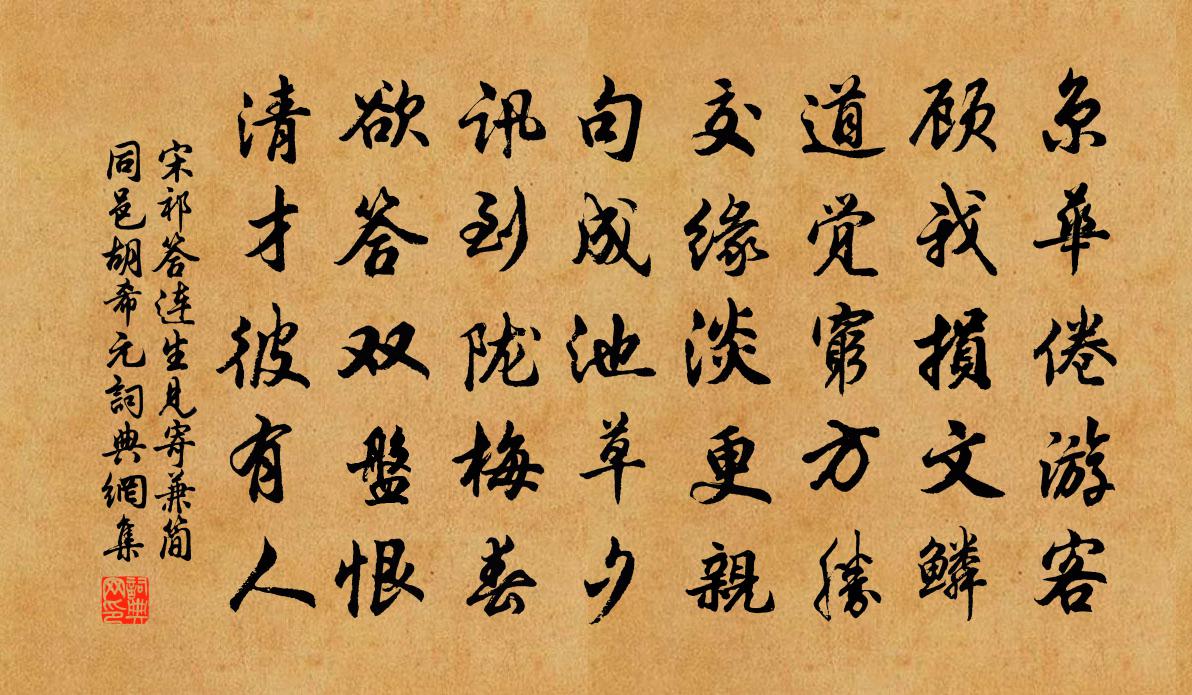 京華倦游客
顾我損文鱗
道觉窮方勝
交缘淡更親
句成池草夕
讯到陇梅春
欲答双盤恨
清才彼有人
宋祁答连生见寄兼简
同邑胡希元詞典網集
詞典网印